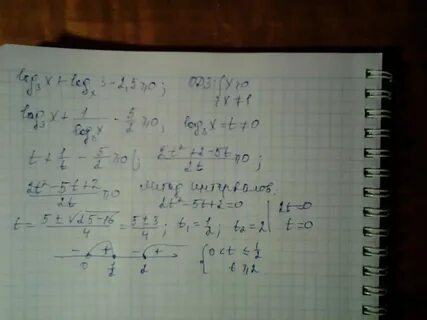 log₃x + log_x 3 - 2,5 ≥ 0; ОДЗ: { x > 0
x ≠ 1
log₃x + 1/log₃x - 5/2 ≥ 0; log₃x = t ≠ 0
t + 1/t - 5/2 ≥ 0; (2t² + 2 - 5t)/2t ≥ 0;
(2t² - 5t + 2)/2t ≥ 0 Метод интервалов.
2t² - 5t + 2 = 0 | 2t = 0
t = (5 ± √(25 - 16))/4 = (5 ± 3)/4; t₁ = 1/2; t₂ = 2 | t = 0
- + - +
0 1/2 2 { 0 < t ≤ 1/2
t ≥ 2